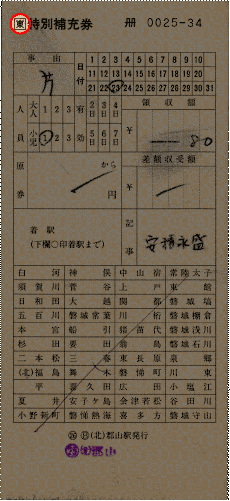 東 特別補充券 冊 0025-34
事由 日付 1 2 3 4 5 6 7 8 9 10
11 12 13 14 15 16 17 18 19 20
21 22 23 24 25 26 27 28 29 30 31
人員 大人 1 2 3 有効 2日 3日 4日 領収額
小児 1 2 3 5日 6日 7日 ¥ 80
原券 から 円 差額収受額
¥
着駅
(下欄○印着駅まで) 記事 安積永盛
白河 神俣 中山宿 常陸太子
須賀川 菅谷 上戸 東館
日和田 大越 関都 磐城塙
五百川 磐城常葉 川桁 磐城棚倉
本宮 船引 猪苗代 磐城浅川
杉田 要田 翁島 磐城石川
二本松 三春 東長原 泉郷
(北)福島 舞木 磐梯町 川東
平 喜久田 広田 小塩江
夏井 安子ケ島 会津若松 谷田川
小野新町 磐梯熱海 喜多方 磐城守山
(北)郡山駅発行